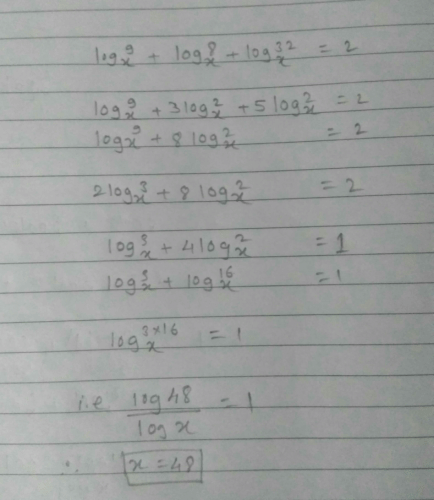 log_x^9 + log_x^8 + log_x^32 = 2
log_x^9 + 3log_x^2 + 5log_x^2 = 2
log_x^9 + 8log_x^2 = 2
2log_x^3 + 8log_x^2 = 2
log_x^3 + 4log_x^2 = 1
log_x^3 + log_x^16 = 1
log_x^3×16 = 1
i.e log 48 / log x = 1
∴ x = 48